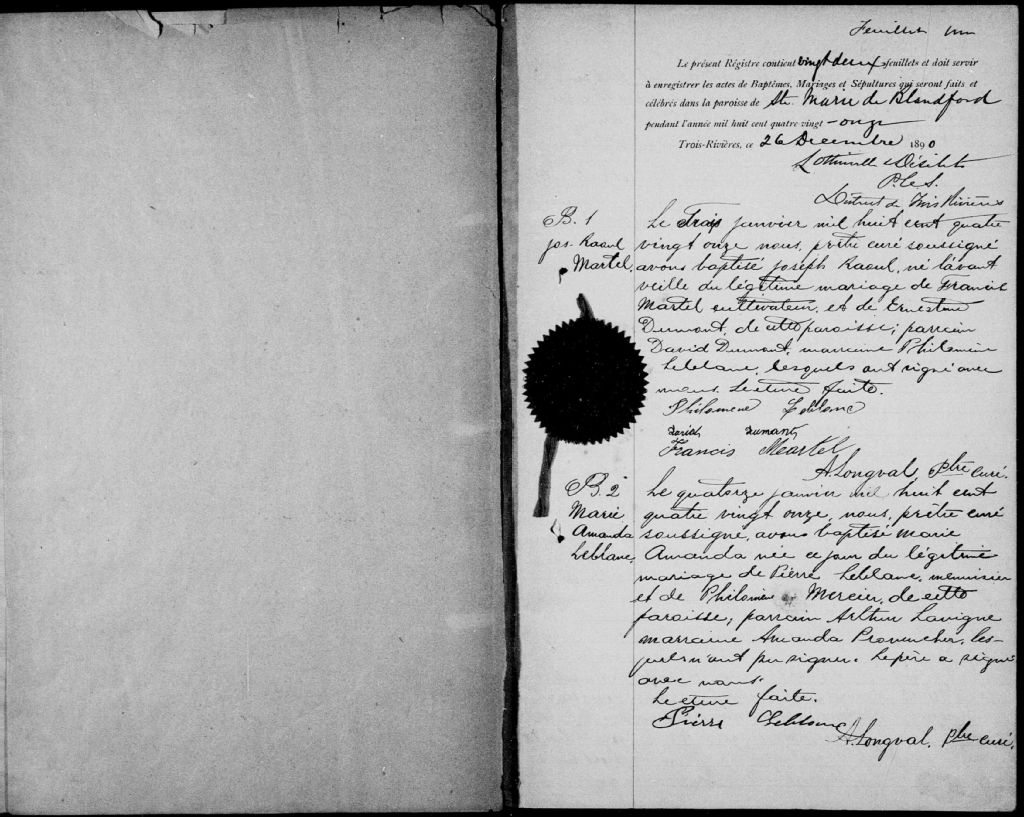 Feuillet un
Le présent Régistre contient vingt deux feuillets et doit servir
à enregistrer les actes de Baptêmes, Mariages et Sépultures qui seront faits et
célébrés dans la paroisse de Ste. Marie de Blandford
pendant l'année mil huit cent quatre vingt -onze
Trois-Rivières, ce 26 Decembre 1890
Lottinville & Désilets
P.C.S.
District de Trois Rivières
B. 1
Jos. Raoul
Martel.
Le Trois janvier mil huit cent quatre
vingt onze nous, prêtre curé soussigné
avons baptisé joseph Raoul, né l'avant
veille du légitime mariage de Francis
Martel cultivateur, et de Ernestine
Dumont, de cette paroisse; parrain
David Dumont, marraine Philomène
Leblanc, lesquels ont signé avec
nous. Lecture faite.
Philomene Leblanc
David Dumont
Francis Meartel
A. Longval, ptre curé.
B. 2
Marie
Amanda
Leblanc.
Le quatorze janvier mil huit cent
quatre vingt onze, nous, prêtre curé
soussigné, avons baptisé Marie
Amanda née ce jour du légitime
mariage de Pierre Leblanc, menuisier
et de Philomène Mercier, de cette
paroisse; parrain Arthur Lavigne
marraine Amanda Provencher, les-
quels n'ont pu signer. Le père a signé
avec nous.
Lecture faite.
Pierre Leblanc
A. Longval, ptre curé.